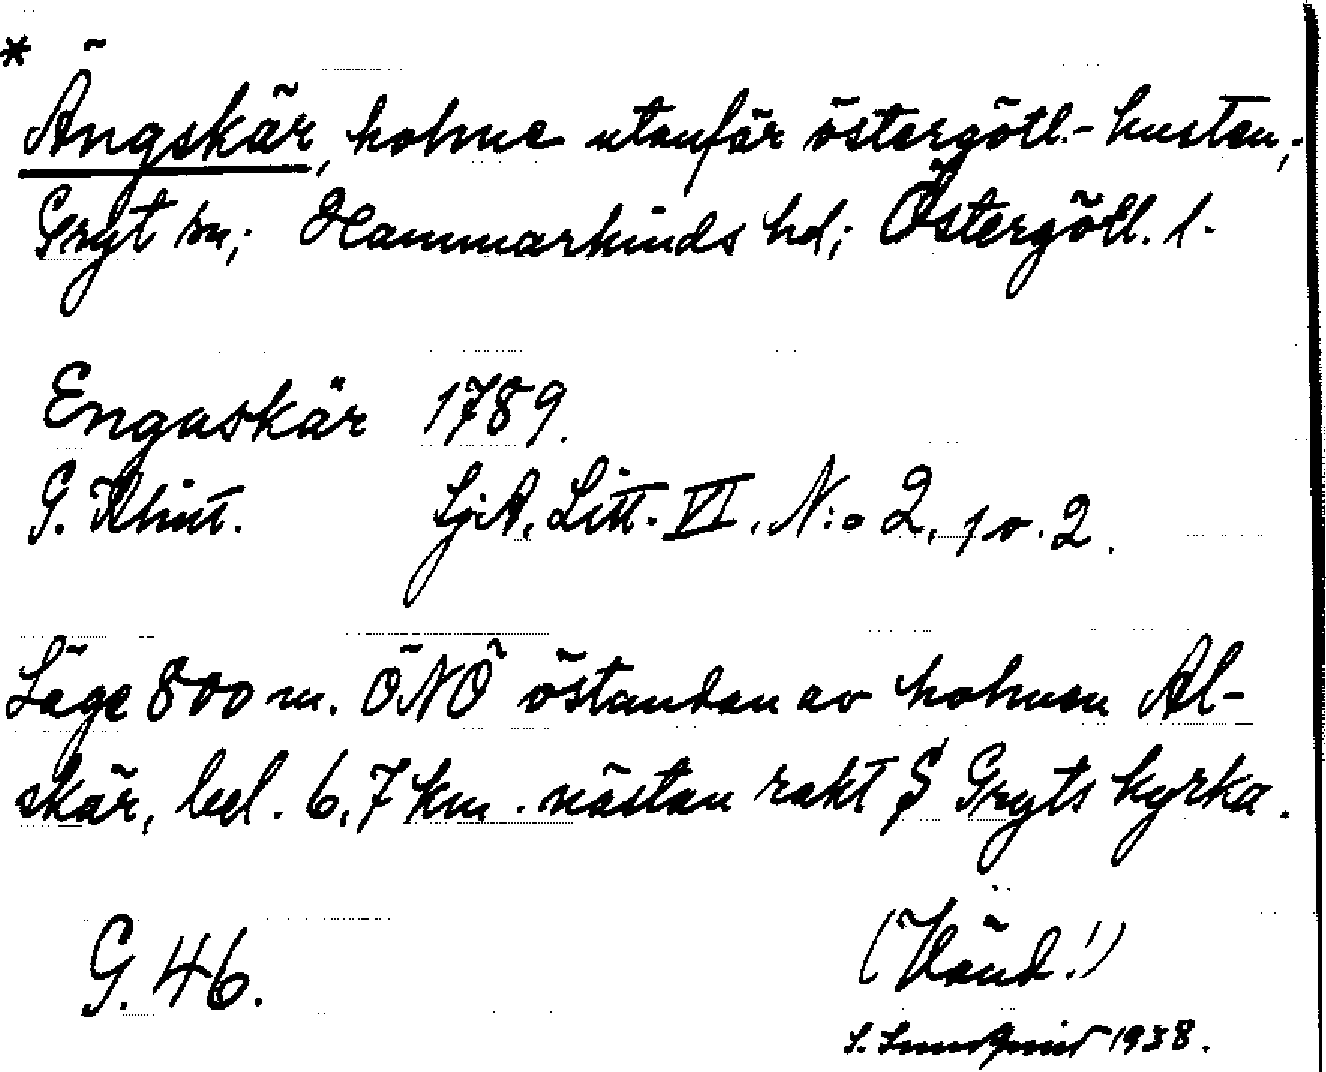 *
Ängskär, holme utanför östergötl.-kusten,
Gryt sn; Hammarkinds hd; Östergötl. l.
Engaskär 1789.
G. Klint. SjA, Litt. VI. N:o 2, 1 o. 2.
Läge 800 m. ÖNÖ östandan av holmen Äl-
skär, bel. 6,7 km. nästan rakt S Gryts kyrka.
G. 46.
(Vänd!)
1938.